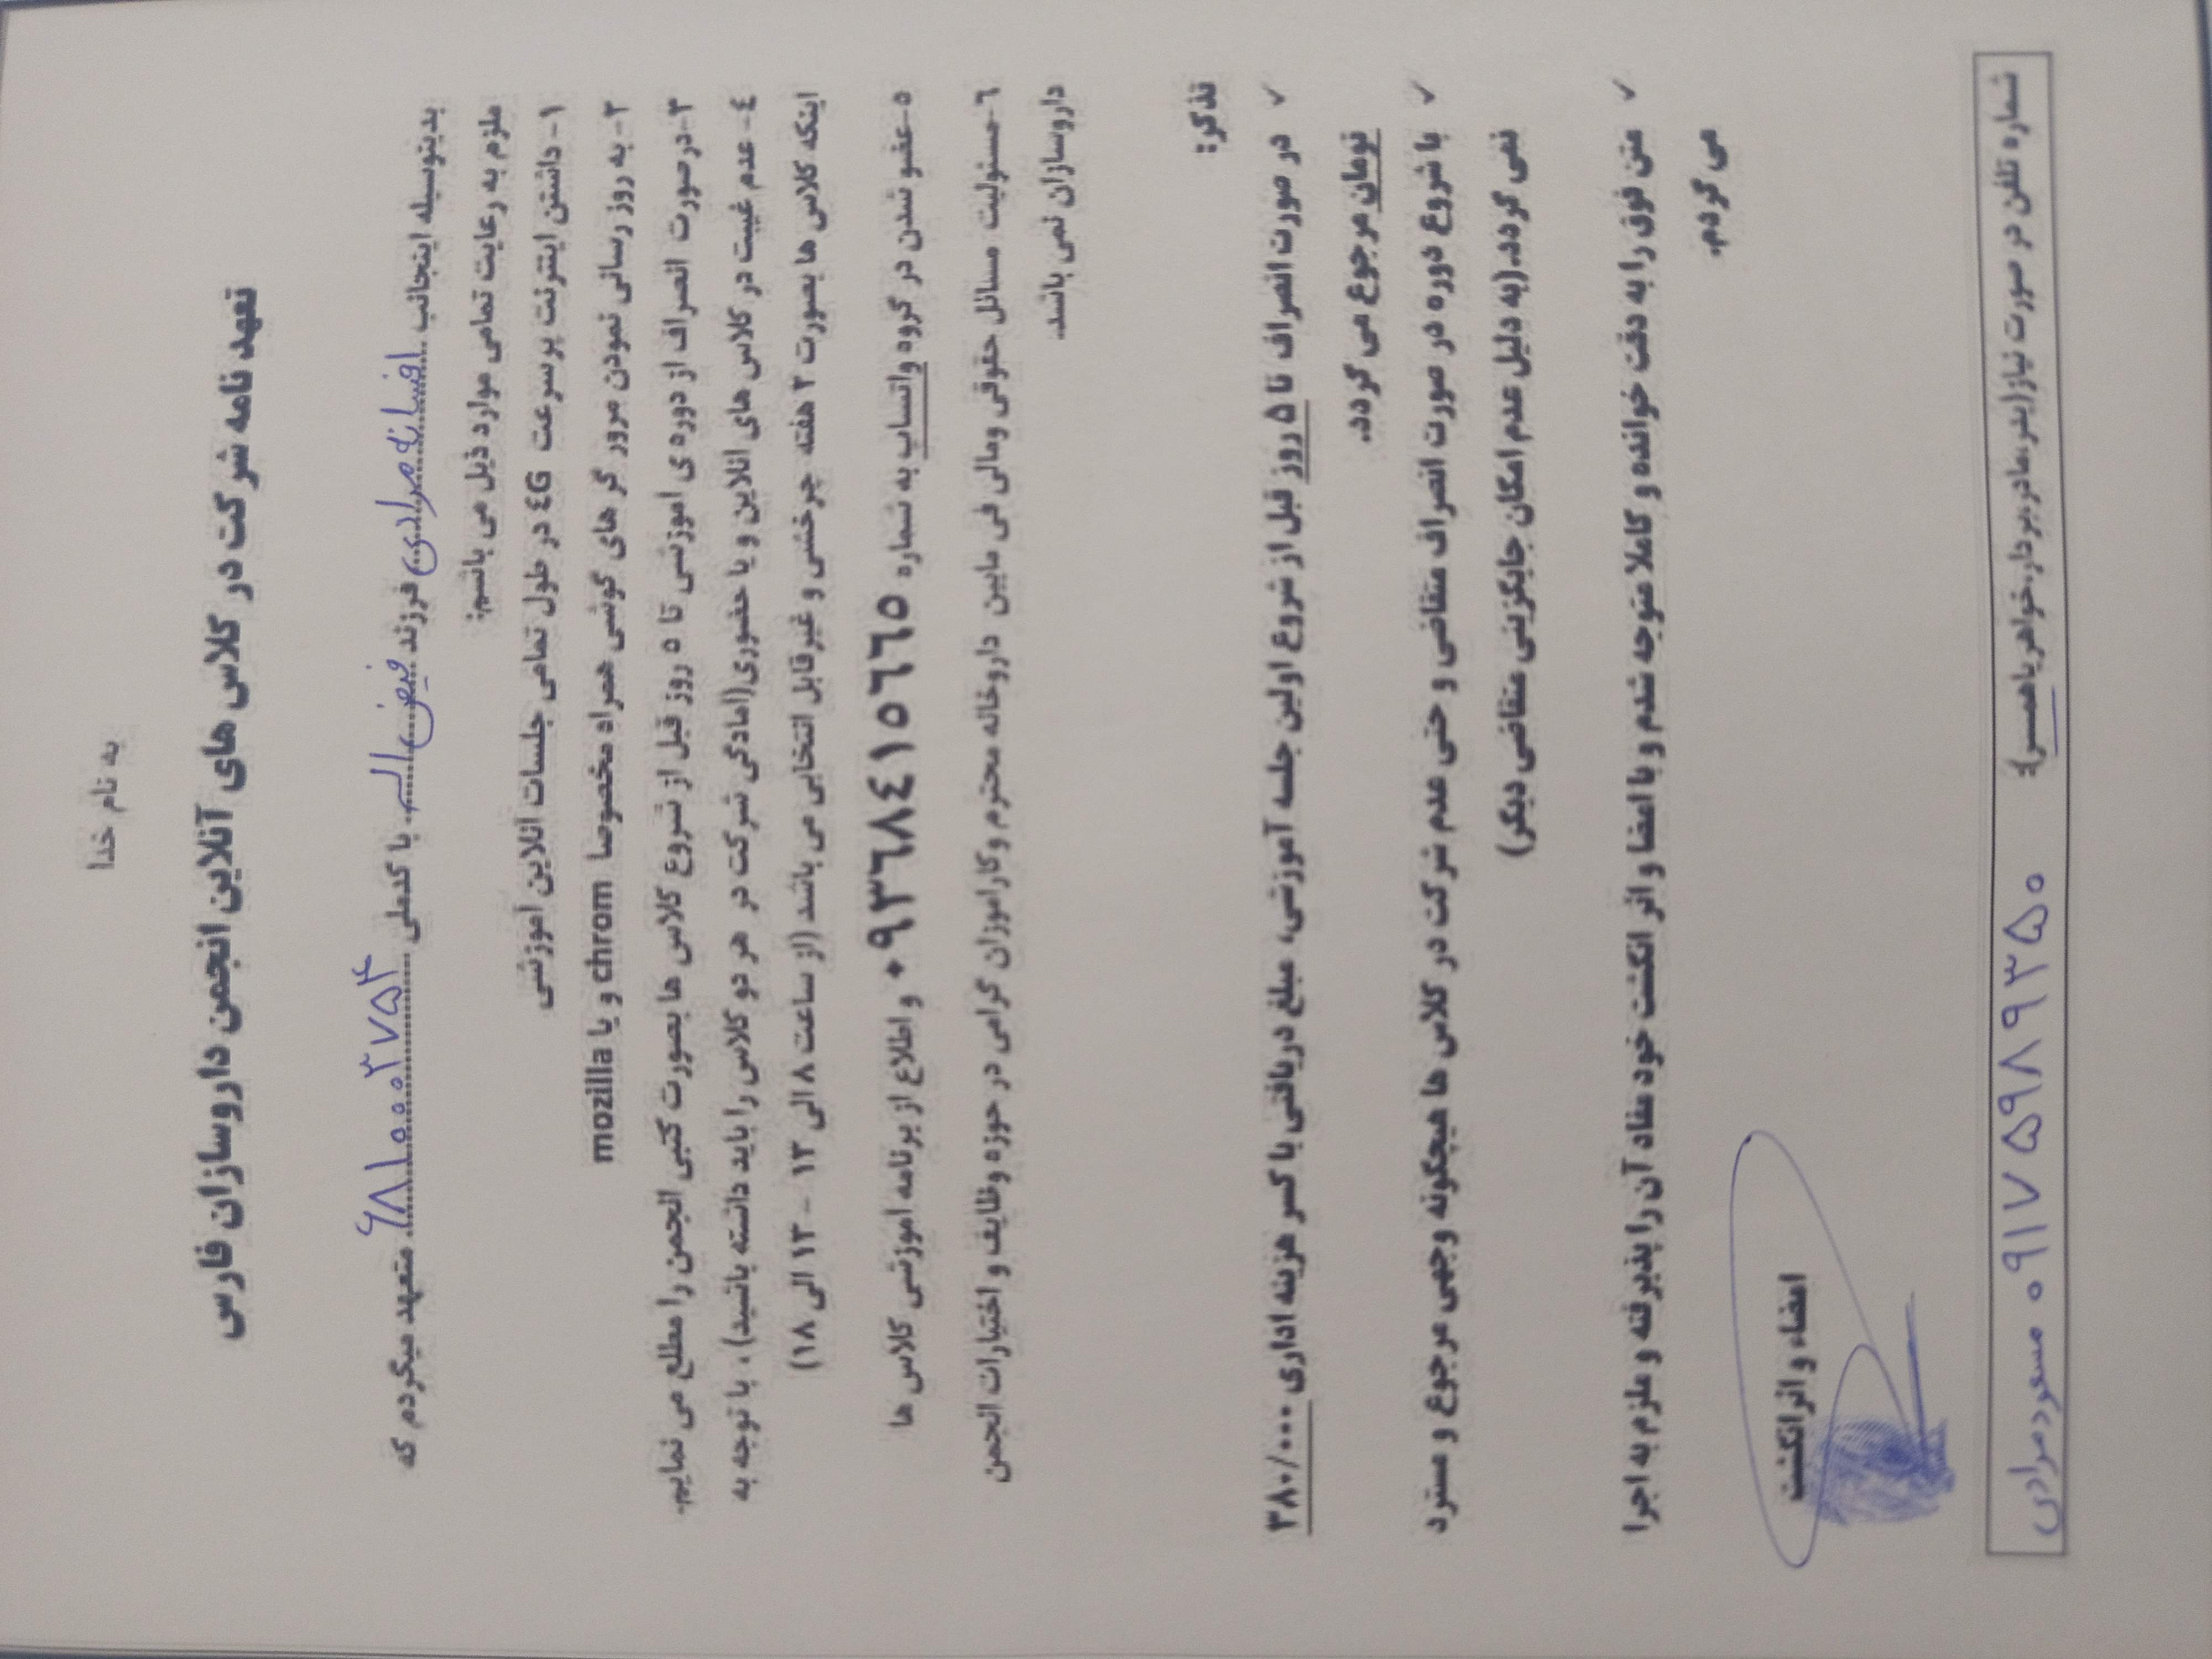 به نام خدا
تعهد نامه شرکت در کلاس های آنلاین انجمن داروسازان فارس
بدینوسیله اینجانب افسانه مرادی فرزند فیض اله با کدملی ۶۸۱۰۰۰۳۷۵۴ متعهد میگردم که
ملزم به رعایت تمامی موارد ذیل می باشم:
۱- داشتن اینترنت پرسرعت ٤G در طول تمامی جلسات آنلاین آموزشی
۲- به روز رسانی نمودن مرور گر های گوشی همراه مخصوصا chrom و یا mozilla
۳-درصورت انصراف از دوره ی آموزشی تا ٥ روز قبل از شروع کلاس ها بصورت کتبی انجمن را مطلع می نمایم.
٤- عدم غیبت در کلاس های آنلاین و یا حضوری(آمادگی شرکت در هر دو کلاس را باید داشته باشید) ، با توجه به
اینکه کلاس ها بصورت ۲ هفته چرخشی و غیرقابل انتخابی می باشد (از ساعت ۸ الی ۱۳ - ۱۳ الی ۱۸)
٥-عضو شدن در گروه واتساپ به شماره ۰۹۳٦۸٤۱٥٦٦٥ و اطلاع از برنامه آموزشی کلاس ها
٦-مسئولیت مسائل حقوقی ومالی فی مابین داروخانه محترم وکارآموزان گرامی در حوزه وظایف و اختیارات انجمن
داروسازان نمی باشد.
تذکر:
✓ در صورت انصراف تا ۵ روز قبل از شروع اولین جلسه آموزشی، مبلغ دریافتی با کسر هزینه اداری ۳۸۰/۰۰۰
تومان مرجوع می گردد.
✓ با شروع دوره در صورت انصراف متقاضی و حتی عدم شرکت در کلاس ها هیچگونه وجهی مرجوع و مسترد
نمی گردد.(به دلیل عدم امکان جایگزینی متقاضی دیگر)
✓ متن فوق را به دقت خوانده و کاملا متوجه شدم و با امضا و اثر انگشت خود مفاد آن را پذیرفته و ملزم به اجرا
می گردم.
امضاء و اثرانگشت
شماره تلفن در صورت نیاز(پدر،مادر،بردار،خواهر یا همسر): ۰۹۱۷۵۹۸۹۳۵۰ مسعود مرادی